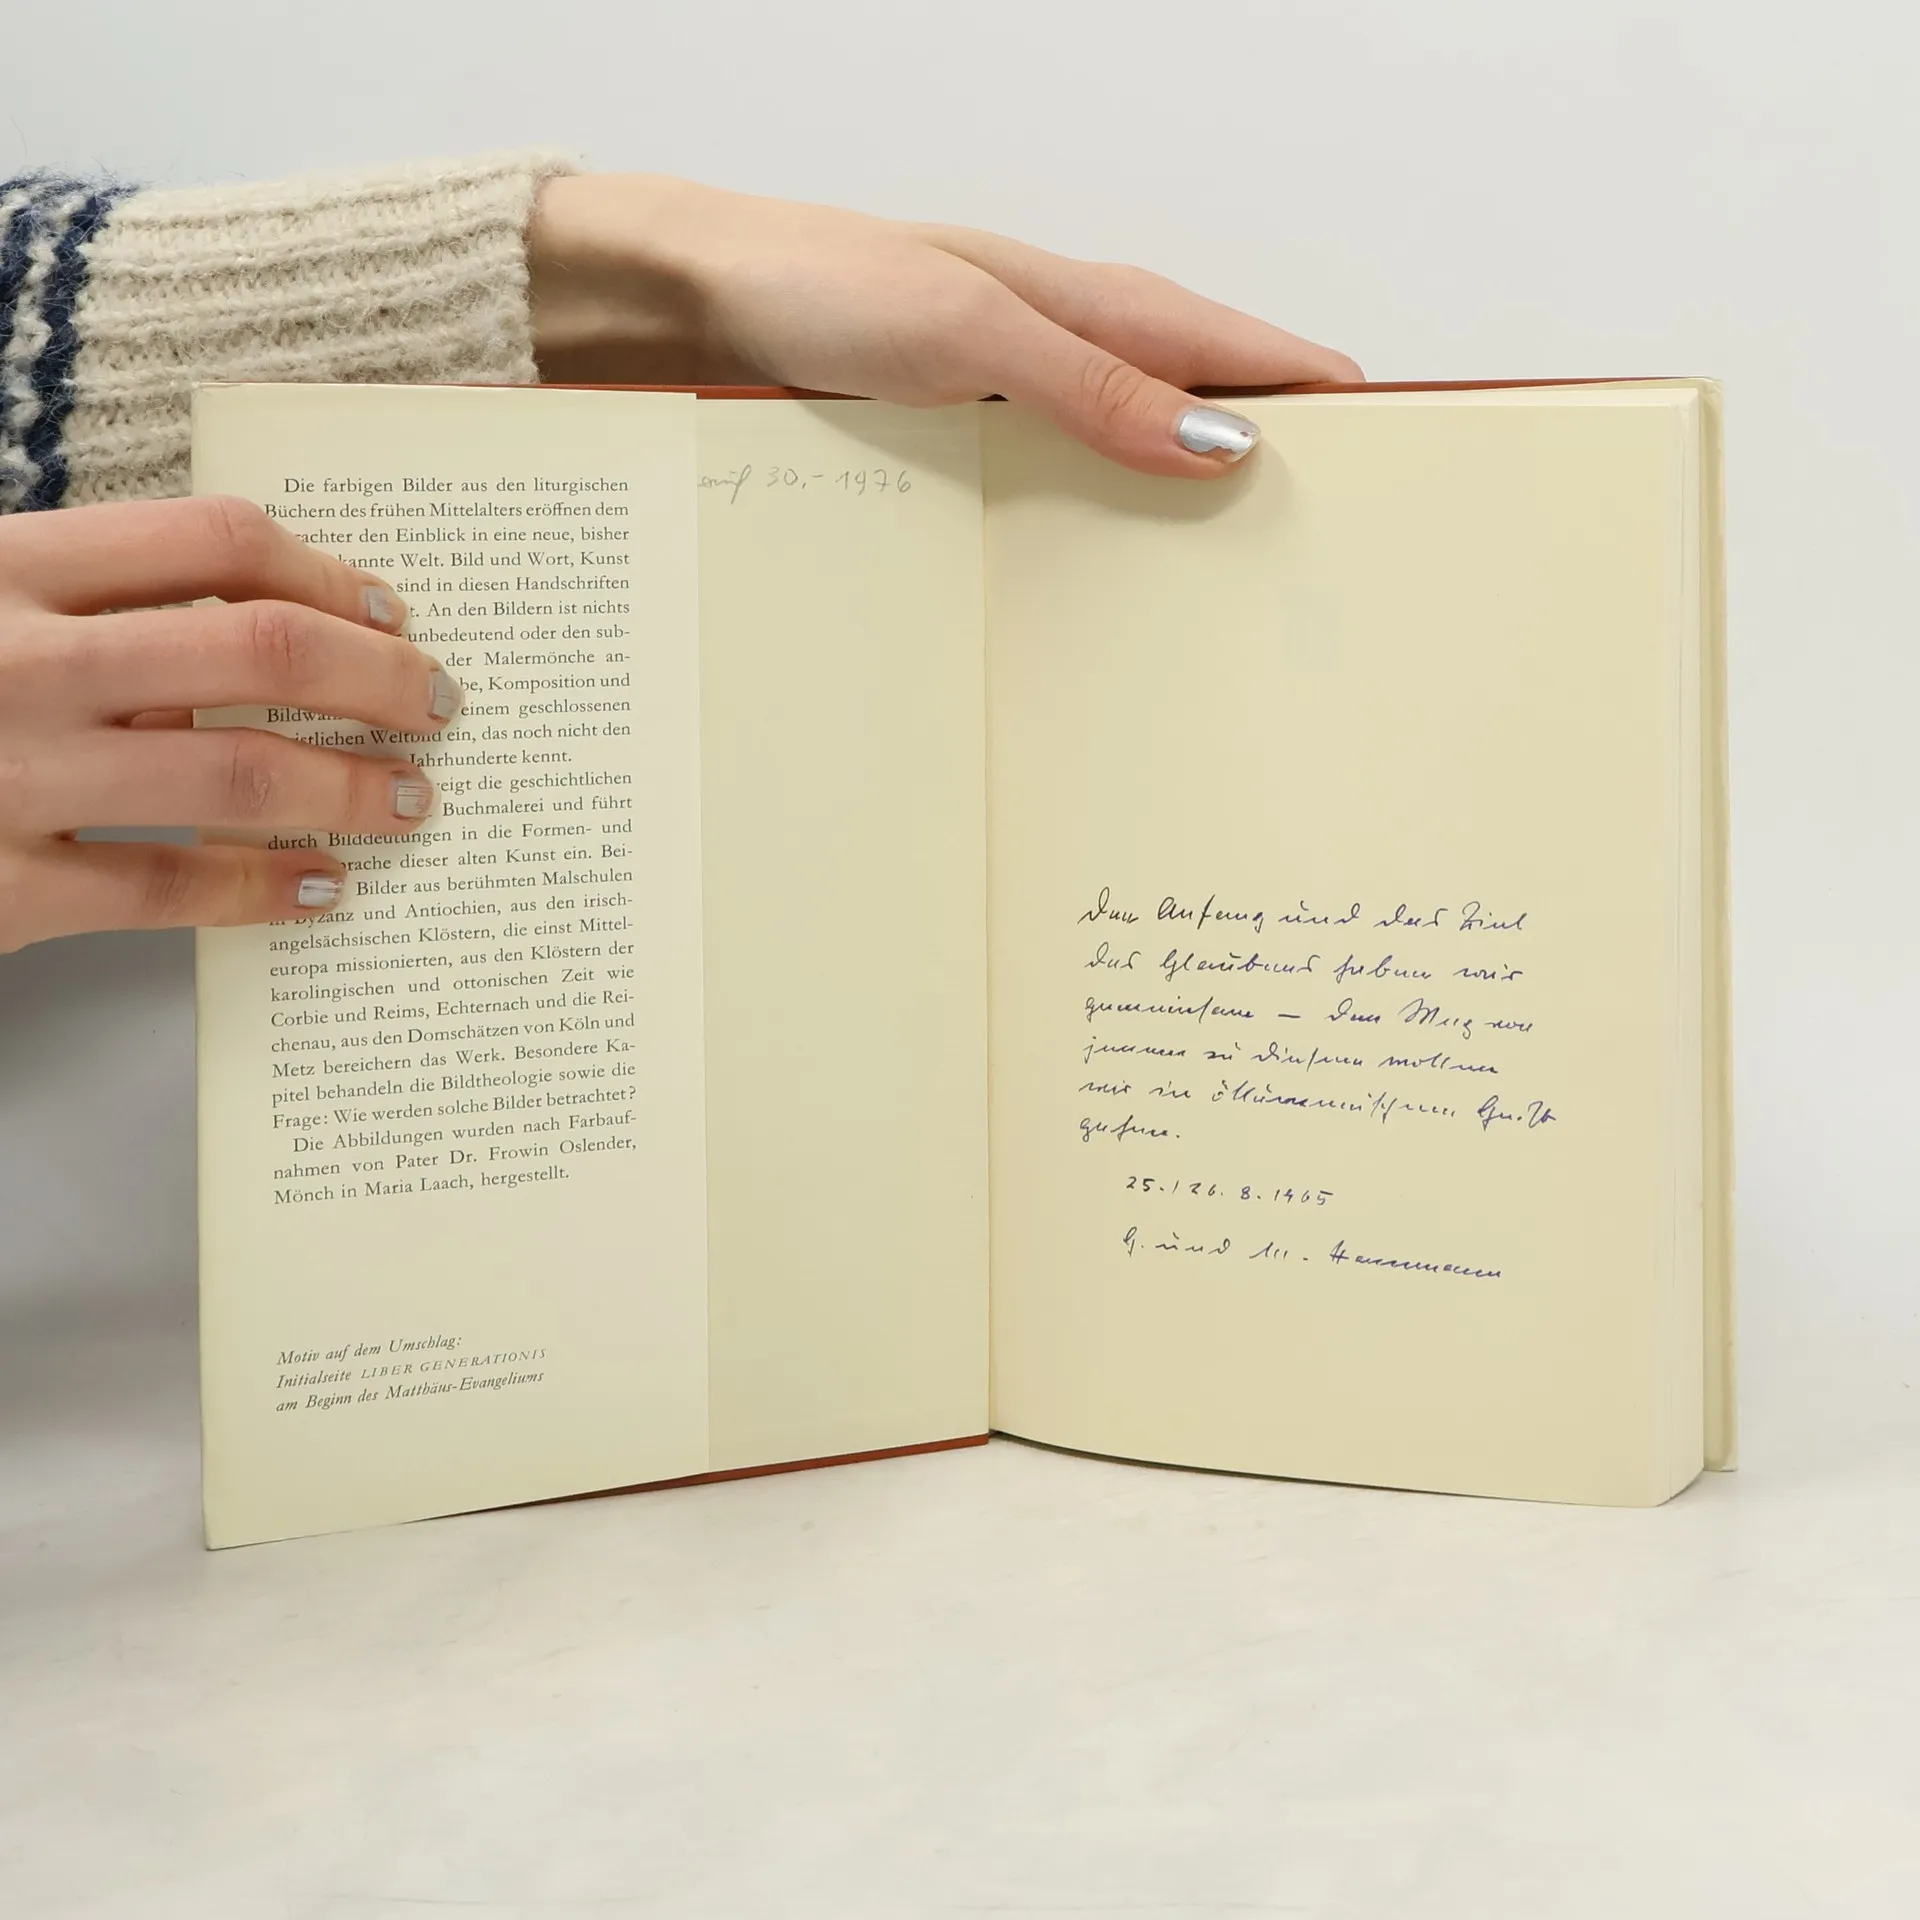 Die farbigen Bilder aus den liturgischen
Büchern des frühen Mittelalters eröffnen dem
rachter den Einblick in eine neue, bisher
kannte Welt. Bild und Wort, Kunst
sind in diesen Handschriften
t. An den Bildern ist nichts
unbedeutend oder den sub-
der Malermönche an-
be, Komposition und
Bildwa einem geschlossenen
istlichen Weltbild ein, das noch nicht den
Jahrhunderte kennt.
eigt die geschichtlichen
Buchmalerei und führt
durch Bilddeutungen in die Formen- und
prache dieser alten Kunst ein. Bei-
Bilder aus berühmten Malschulen
in Byzanz und Antiochien, aus den irisch-
angelsächsischen Klöstern, die einst Mittel-
europa missionierten, aus den Klöstern der
karolingischen und ottonischen Zeit wie
Corbie und Reims, Echternach und die Rei-
chenau, aus den Domschätzen von Köln und
Metz bereichern das Werk. Besondere Ka-
pitel behandeln die Bildtheologie sowie die
Frage: Wie werden solche Bilder betrachtet?
Die Abbildungen wurden nach Farbauf-
nahmen von Pater Dr. Frowin Oslender,
Mönch in Maria Laach, hergestellt.
Motiv auf dem Umschlag:
Initialseite LIBER GENERATIONIS
am Beginn des Matthäus-Evangeliums
30,- 1976
Den Anfang und das Ziel
des Glaubens haben wir
gemeinsam — den Weg von
jenem zu diesem wollen
wir in ökumenischem Geist
gehen.
25./26. 8. 1965
G. und M. Hannemann